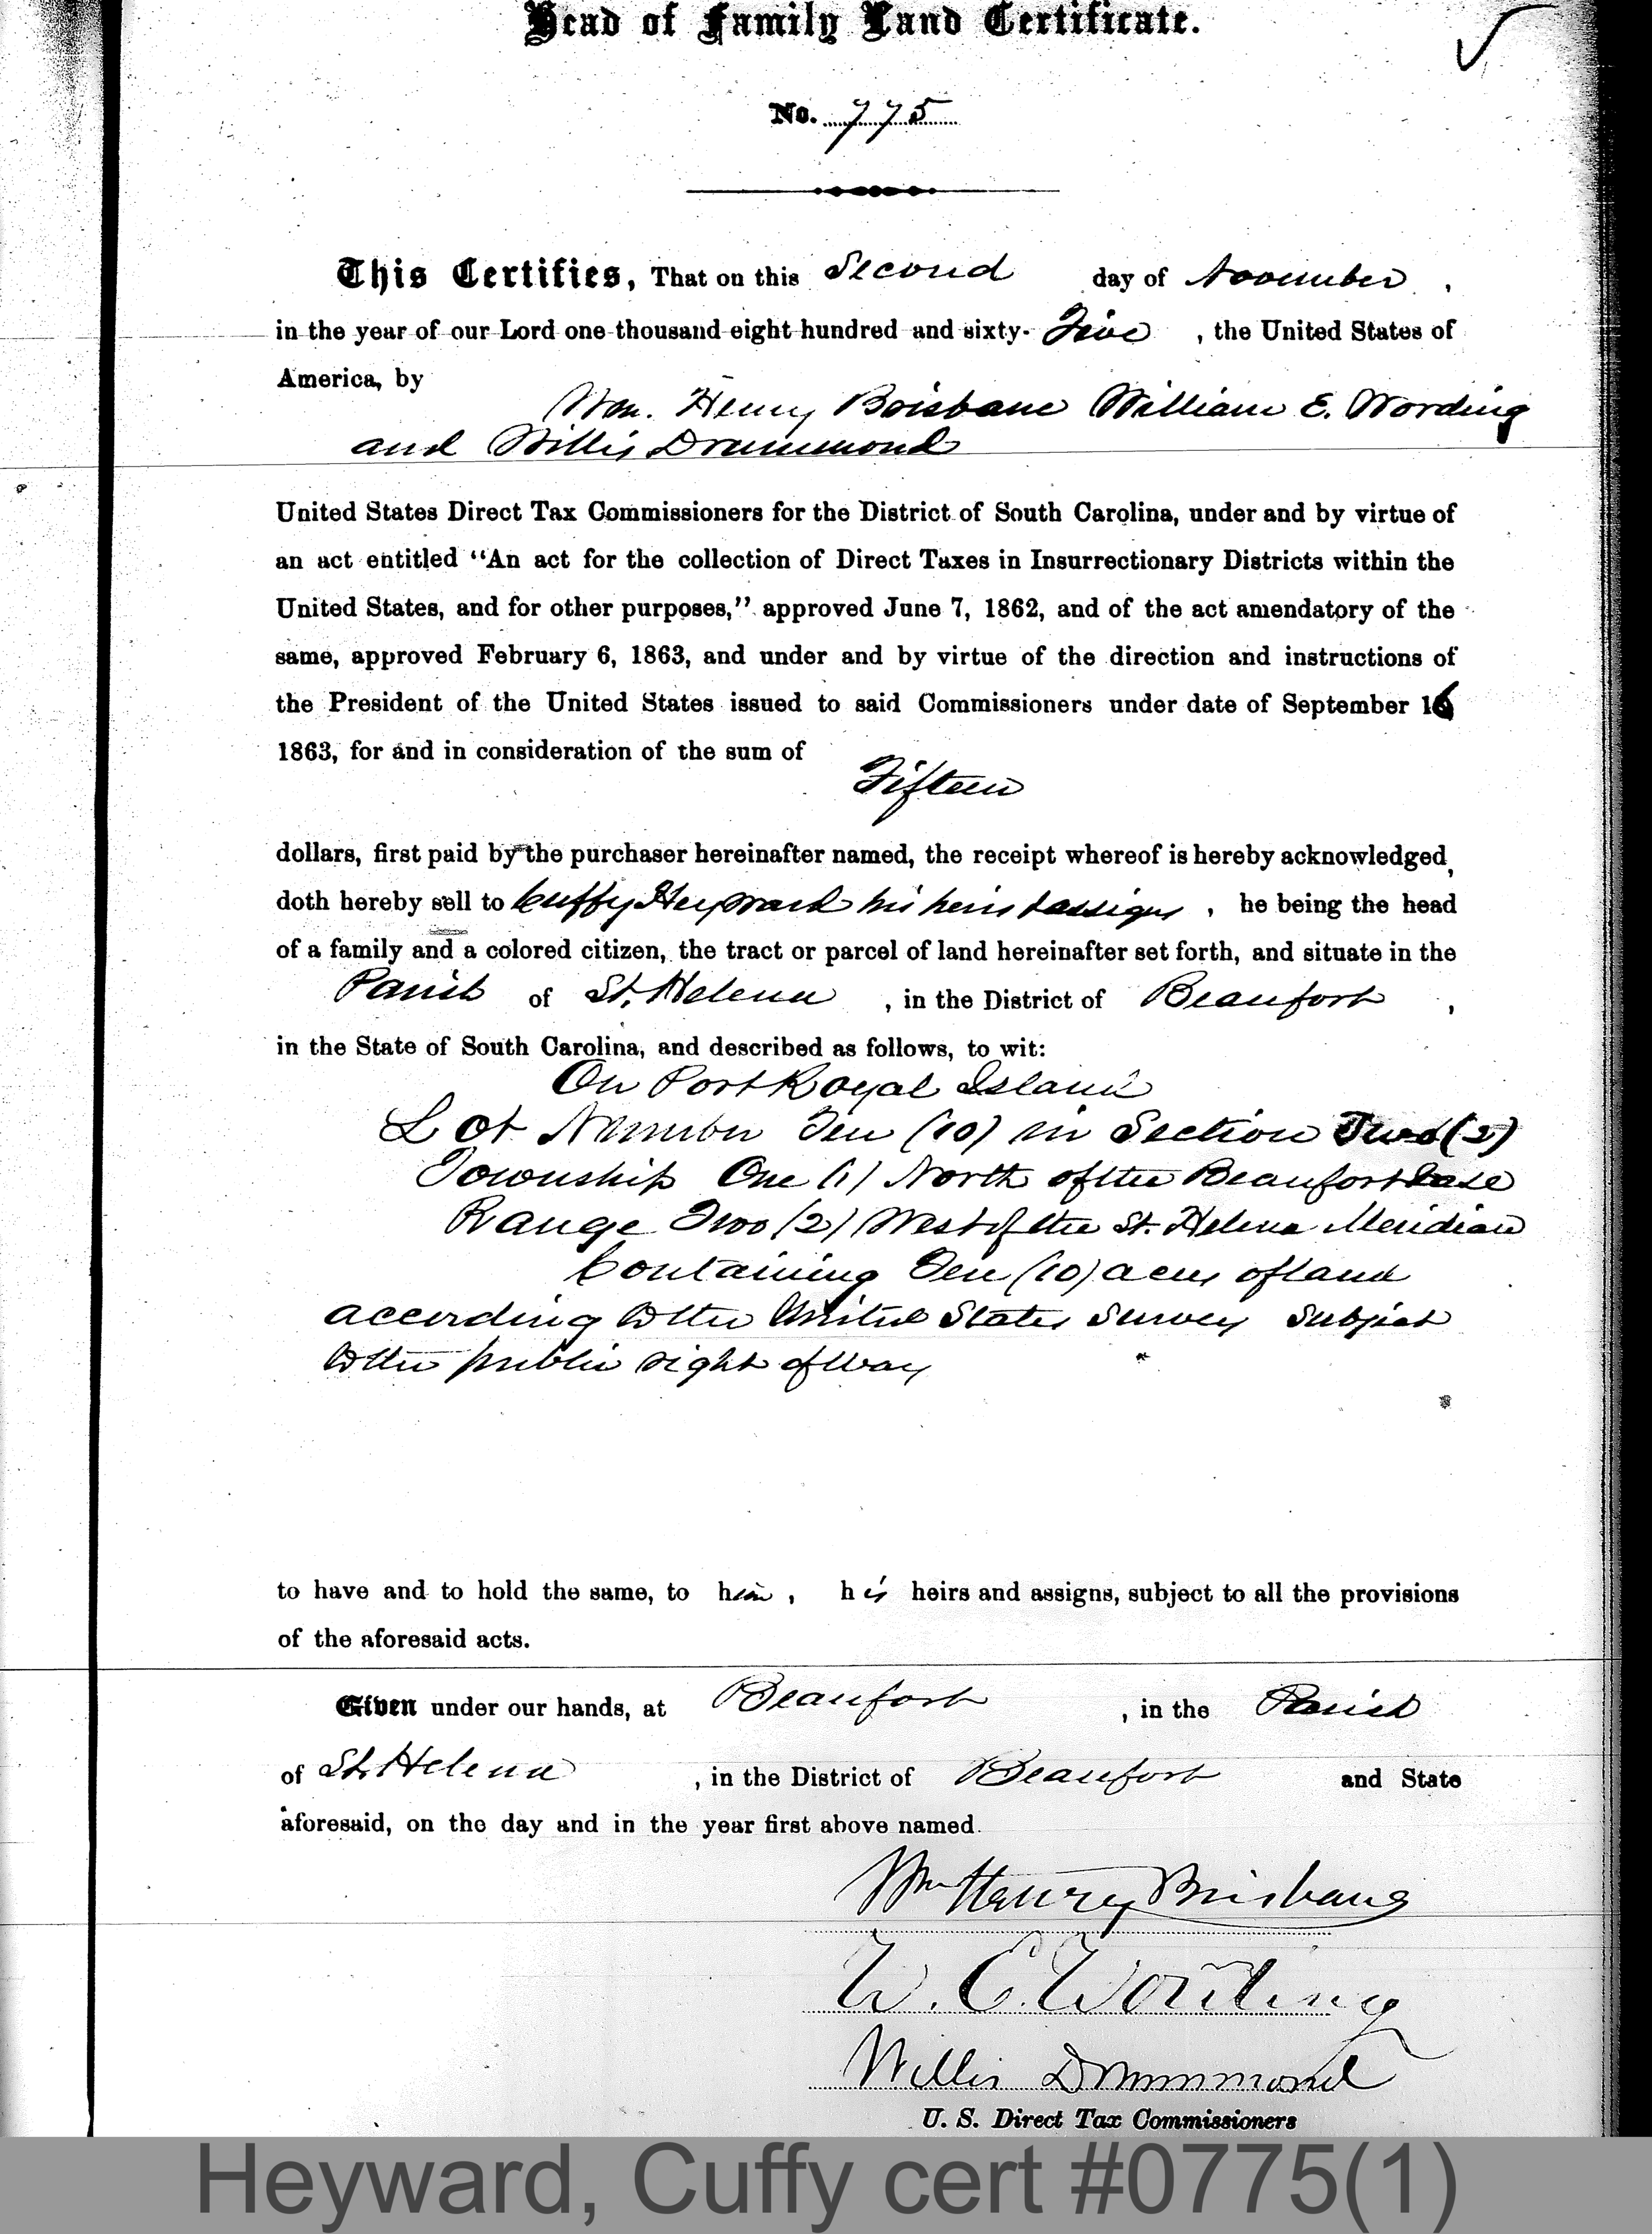 Head of Family Land Certificate.
No. 775
This Certifies, That on this Second day of November,
in the year of our Lord one thousand eight hundred and sixty- Five, the United States of
America, by
Wm. Henry Brisbane William E. Wording
and Willis Drummond
United States Direct Tax Commissioners for the District of South Carolina, under and by virtue of
an act entitled "An act for the collection of Direct Taxes in Insurrectionary Districts within the
United States, and for other purposes," approved June 7, 1862, and of the act amendatory of the
same, approved February 6, 1863, and under and by virtue of the direction and instructions of
the President of the United States issued to said Commissioners under date of September 16
1863, for and in consideration of the sum of
Fifteen
dollars, first paid by the purchaser hereinafter named, the receipt whereof is hereby acknowledged,
doth hereby sell to Cuffy Heyward his heirs & assigns, he being the head
of a family and a colored citizen, the tract or parcel of land hereinafter set forth, and situate in the
Parish of St. Helena, in the District of Beaufort,
in the State of South Carolina, and described as follows, to wit:
On Port Royal Island
Lot Number Ten (10) in Section Two (2)
Township One (1) North of the Beaufort Base
Range Two (2) West of the St. Helena Meridian
Containing Ten (10) acres of land
according to the United States Survey Subject
to the public right of Way
to have and to hold the same, to him, his heirs and assigns, subject to all the provisions
of the aforesaid acts.
Given under our hands, at Beaufort, in the Parish
of St. Helena, in the District of Beaufort and State
aforesaid, on the day and in the year first above named.
Wm Henry Brisbane
W. E. Wording
Willis Drummond
U. S. Direct Tax Commissioners
Heyward, Cuffy cert #0775(1)